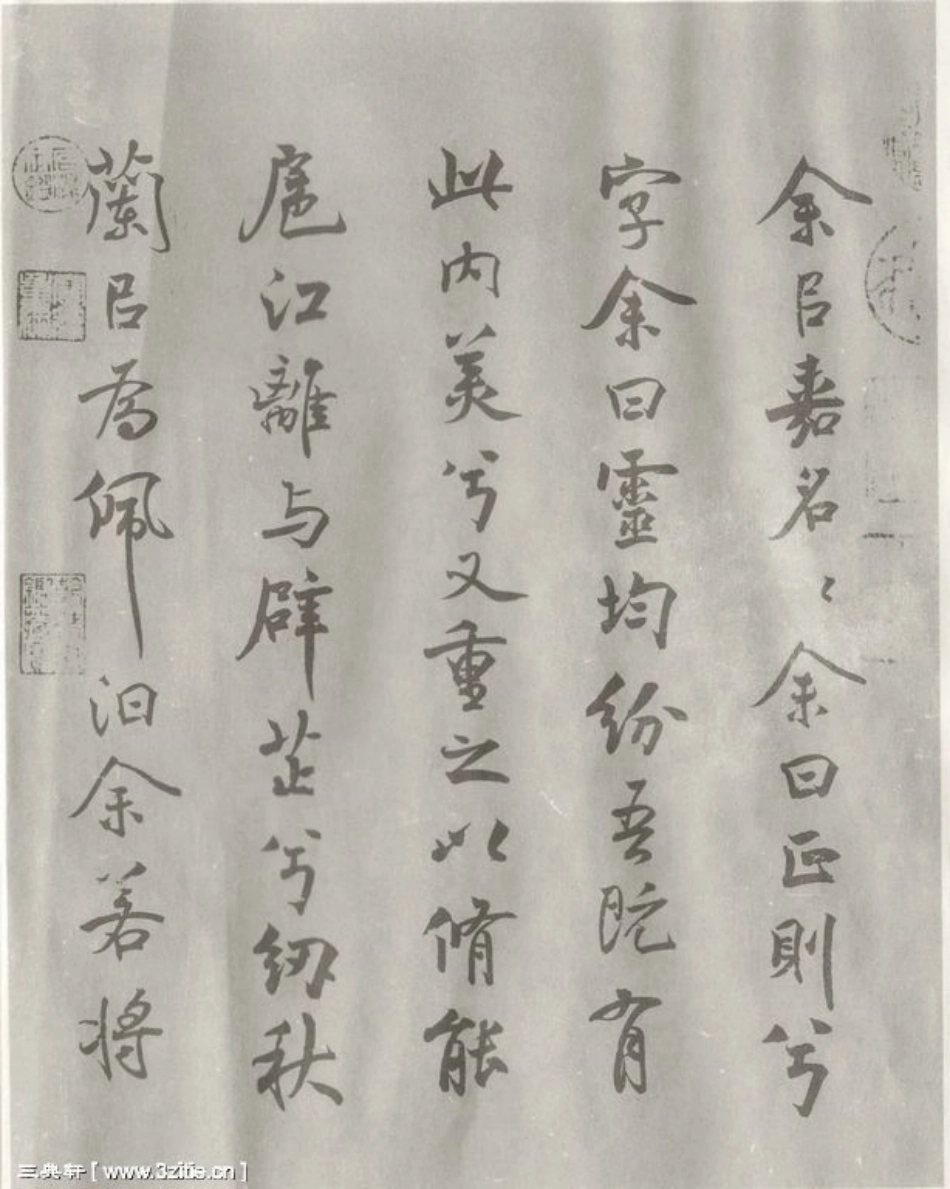 余㠯嘉名〻余曰正則兮
字余曰靈均紛吾既有
此内美兮又重之以脩能
扈江離与辟芷兮紉秋
蘭㠯為佩汩余若将
三典轩[www.3zitie.cn]